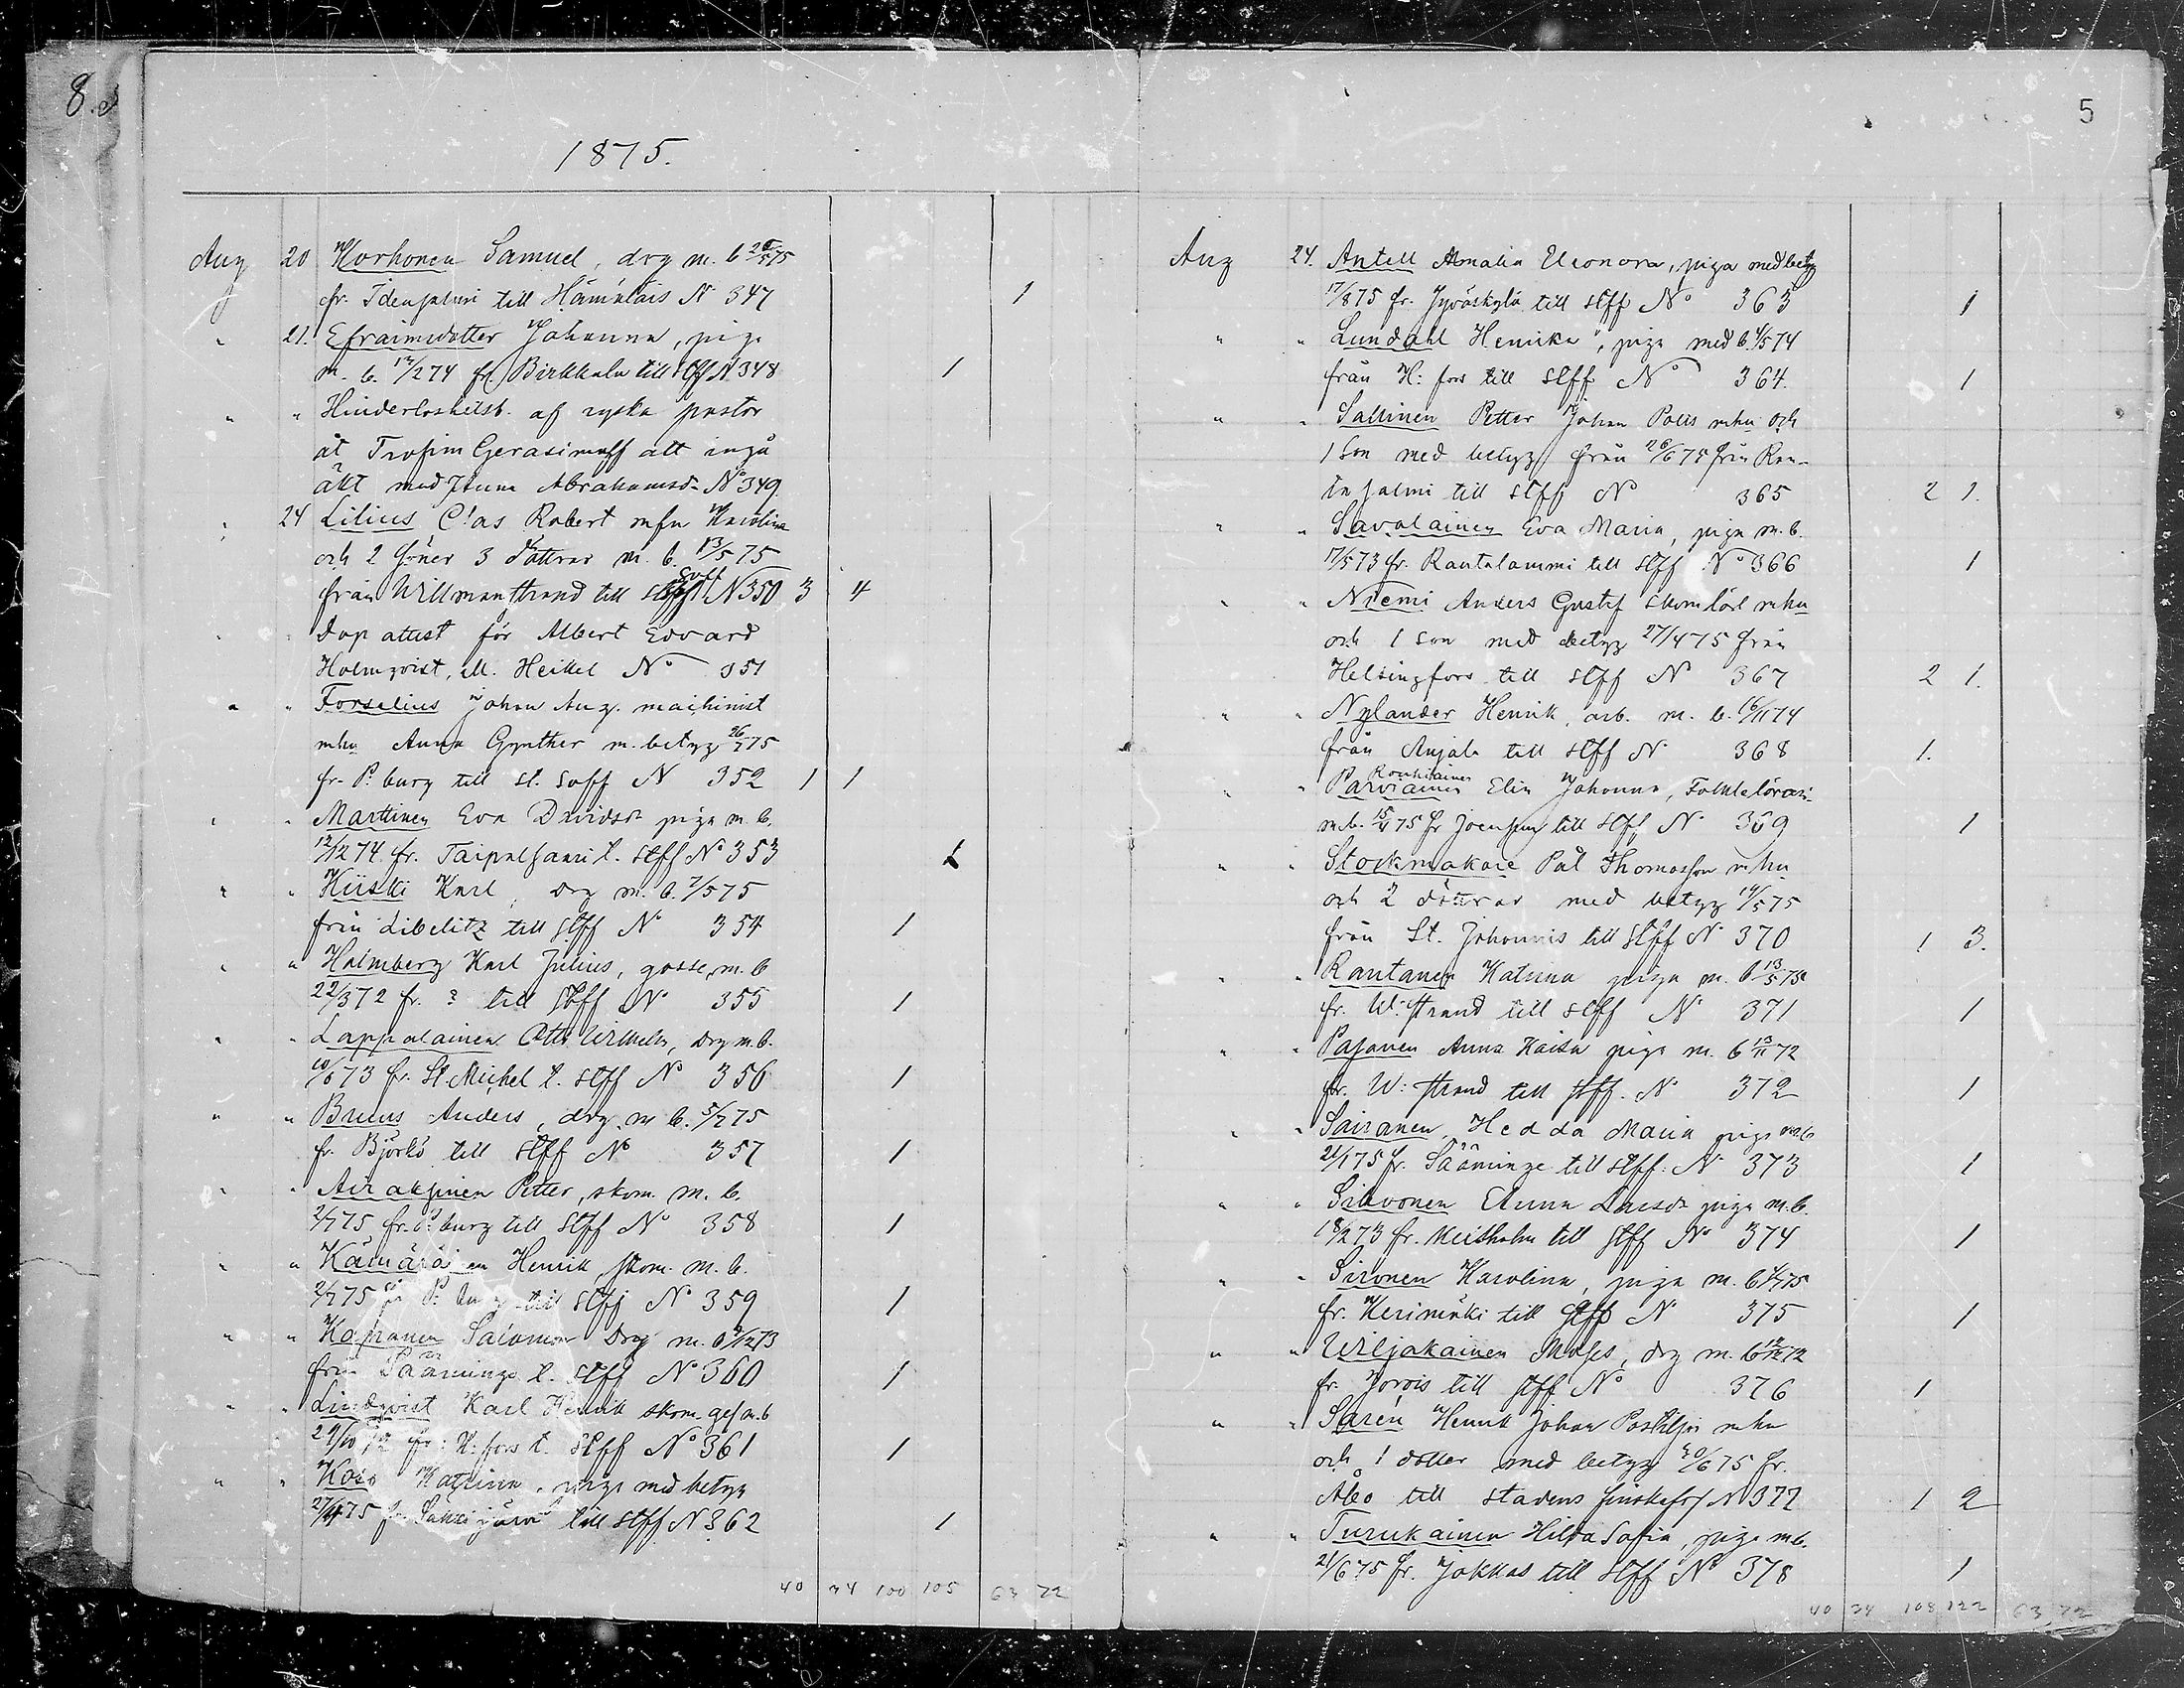 8.
1875.
Aug 20 Korhonen Samuel, drg m. b 26/575
fr. Idensalmi till Hämulais N 347 1
" 21. Efraimsdotter Johanna, piga
m. b. 17/274 fr. Birkkala till stff N. 348 1
" " Hinderloshetsb. af ryska pastor
åt Trofim Gerasimoff att ingå
äkt med Anna Abrahamsdr No 349.
" 24 Lilius Clas Robert mhu Karolina
och 2 söner 3 döttrar m. b. 13/5 75
från Willmanstrand till st sv ff N 350 3 4
" " Dop attest för Albert Edvard
Holmqvist, M. Heikel No 351
" " Forselius Johan Aug. machinist
mhu Anna Gynther m. betyg 26/7 75
fr. P. burg till st. svff N 352 1 1
" " Marttinen Eva Davidsdr piga m. b.
12/1274. fr. Taipalsaari t. stff No 353 1
" " Kiiski Karl, drg m. b. 7/575
från Libelitz till stff N 354 1
" " Holmberg Karl Julius, gosse, m. b
22/372 fr. ? till stff No 355 1
" " Lappalainen Otto Wilhelm, drg m. b.
10/673 fr. St. Michel t. stff No 356 1
" " Bruus Anders, drg. m b. 5/775
fr. Björkö till stff No 357 1
" " Airaksinen Petter, skom. m. b.
2/775 fr. P: burg till stff No 358 1
" " Kämäräinen Henrik, skom. m. b.
2/775 fr P: burg till stff No 359 1
" " Kapanen Salomon drg m. b /1273
från Sääminge t. stff No 360 1
" " Lindqvist Karl Henrik skom. ges m. b
29/10 72 fr: H: fors t. stff No 361 1
" " Koso Katrina, piga med betyg
27/475 fr. Säkkijärvi till stff N 362 1
40 34 100 105 63 72
5
Aug 24. Antell Amalia Eleonora, piga med betyg
17/875 fr. Jyväskylä till stff No 363 1
" " Lundahl Henrika, piga med b. 4/574
från H: fors till stff No 364. 1
" " Sallinen Petter Johan Polis mhu och
1 son med betyg från 26/675 från Ran-
tasalmi till stff No 365 2 1.
" " Savolainen Eva Maria, piga m. b.
17/573 fr. Rautalammi till stff No 366 1
" " Niemi Anders Gustaf skomlärl mhu
och 1 son med betyg 27/475 från
Helsingfors till stff N 367 2 1.
" " Nylander Henrik, arb. m. b. 16/1174
från Anjala till stff N 368 1.
Rouhiainen
" " Parviainen Elin Johanna, Folkskolärari-
m. b. 15/ 75 fr Joensuu till stff N 369 1
" " Stockmakare Pål Thomasson mhu
och 2 döttrar med betyg 14/575
från St. Johannis till stff N 370 1 3.
" " Rautanen Katrina piga m. b 13/575
fr. W: strand till stff N 371 1
" " Pajanen Anna Kaisa piga m. b 13/11 72
fr. W: strand till stff. N 372 1
" " Sairanen Hedda Maria piga m. b
21/175 fr. Sääminge till stff. N 373 1
" " Sihvonen Anna Larsdr piga m. b.
18/273 fr. Mohla till stff No 374 1
" " Sironen Karolina, piga m. b 4/775
fr. Kerimäki till stff N 375 1
" " Wiljakainen Moses, drg m. b 12/1272
fr. Jorois till stff No 376 1
" " Sarén Henrik Johan Postiljon mhu
och 1 dotter med betyg 30/675 fr.
Åbo till stadens finska förs N 377 1 2
" " Turukainen Hilda Sofia, piga m. b.
21/675 fr. Jokkas till stff No 378 1
40 34 108 122 63, 72